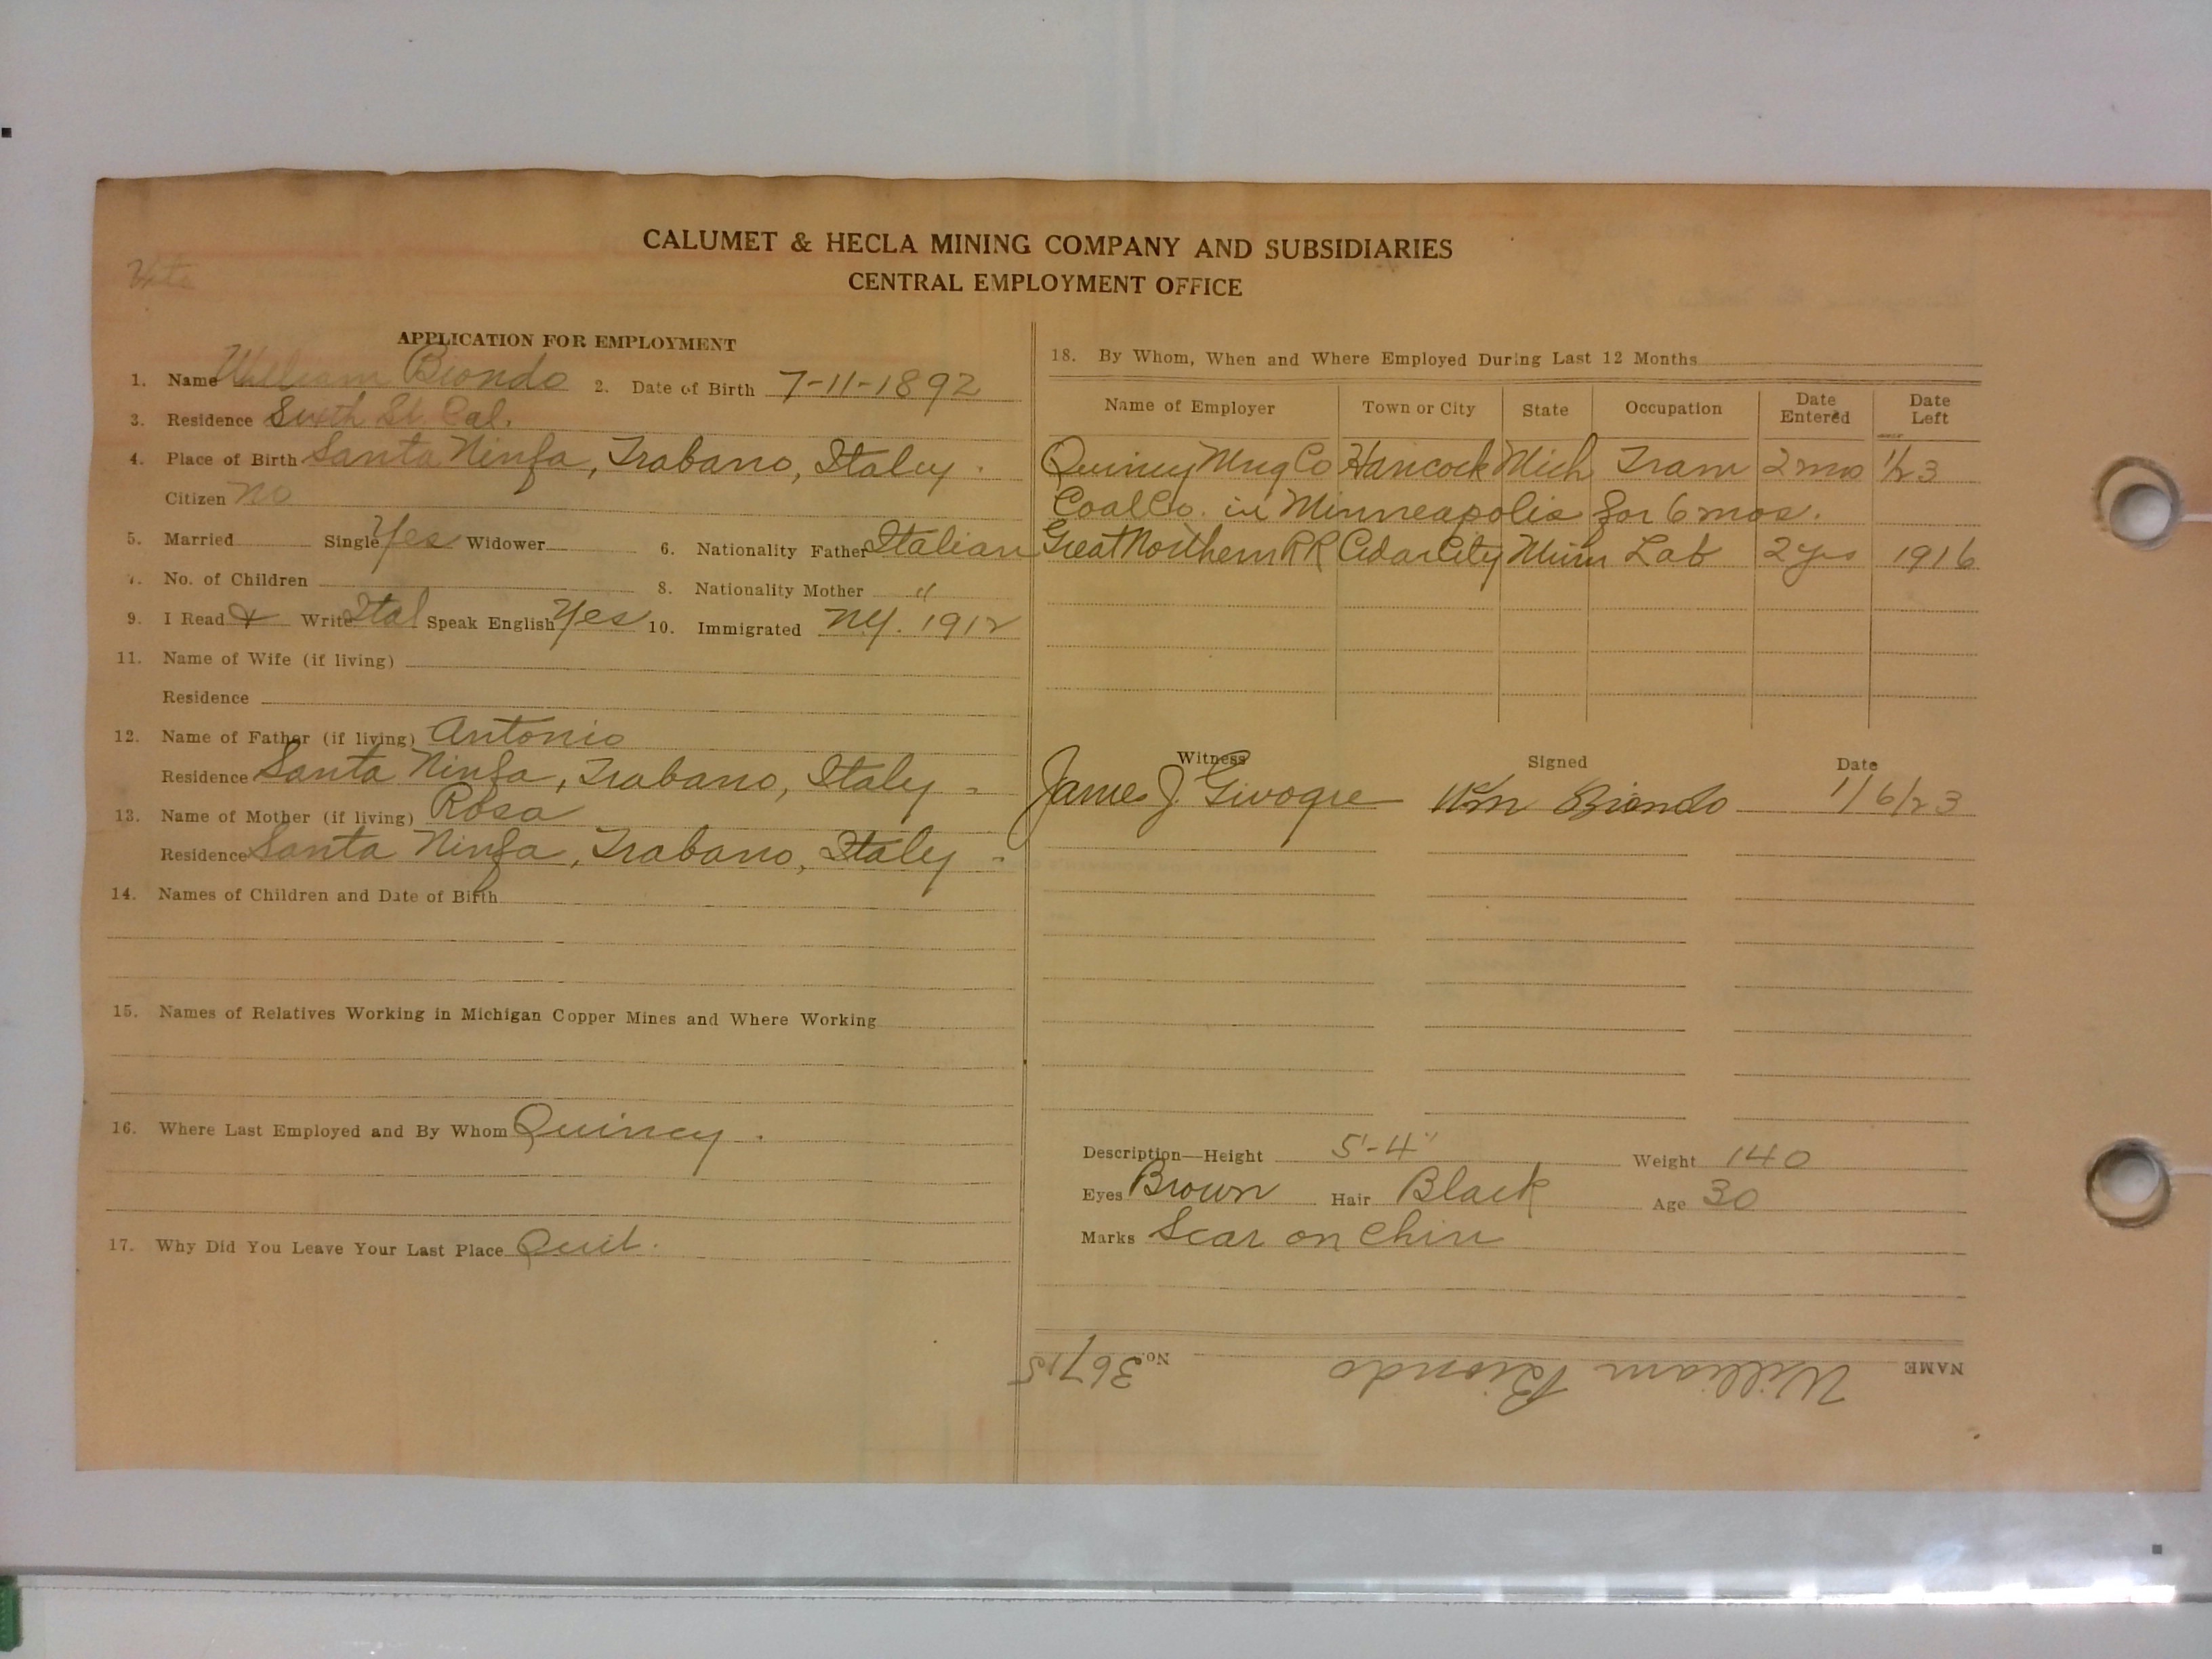 CALUMET & HECLA MINING COMPANY AND SUBSIDIARIES
CENTRAL EMPLOYMENT OFFICE
APPLICATION FOR EMPLOYMENT
1. Name William Biondo 2. Date of Birth 7-11-1892
3. Residence Sixth St. Cal.
4. Place of Birth Santa Ninfa, Trabano, Italy.
Citizen No
5. Married Single Yes Widower 6. Nationality Father Italian
7. No. of Children 8. Nationality Mother "
9. I Read & Write Ital Speak English Yes 10. Immigrated N.Y. 1912
11. Name of Wife (if living)
Residence
12. Name of Father (if living) Antonio
Residence Santa Ninfa, Trabano, Italy -
13. Name of Mother (if living) Rosa
Residence Santa Ninfa, Trabano, Italy -
14. Names of Children and Date of Birth
15. Names of Relatives Working in Michigan Copper Mines and Where Working
16. Where Last Employed and By Whom Quincy.
17. Why Did You Leave Your Last Place Quit.
18. By Whom, When and Where Employed During Last 12 Months
Name of Employer Town or City State Occupation Date Entered Date Left
Quincy Mng Co Hancock Mich Tram 2 mo 1/23
Coal Co. in Minneapolis for 6 mos.
Great Northern RR Cedar City Minn Lab 2 yrs 1916
Witness Signed Date
James J. Wm Biondo 1/6/23
Description—Height 5'-4" Weight 140
Eyes Brown Hair Black Age 30
Marks Scar on Chin
NAME William Biondo No. 36715